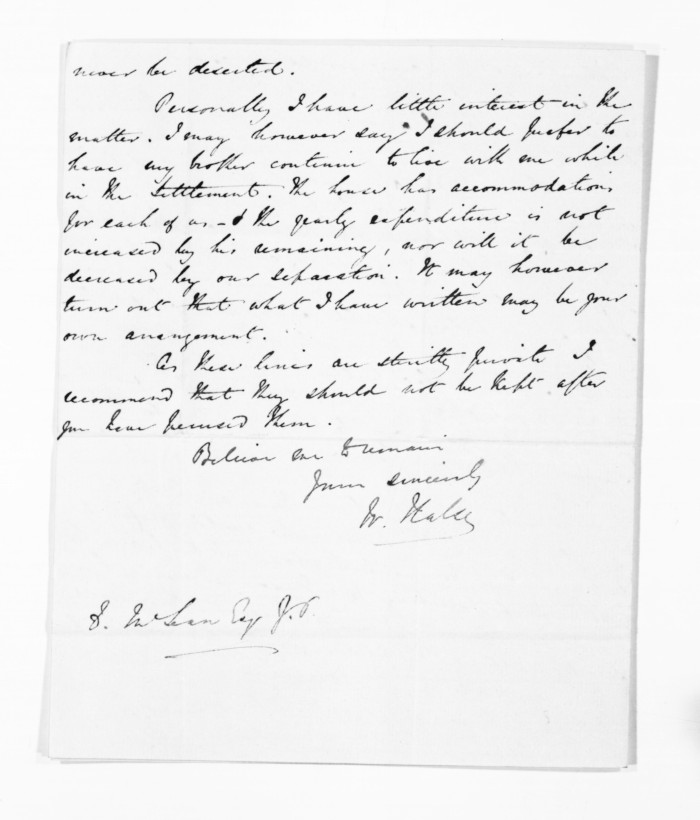 never be deserted.
Personally I have little interest in the
matter. I may however say I should prefer to
have my brother continue to live with me while
in the Settlement. The house has accommodations
for each of us - & the yearly expenditure is not
increased by his remaining, nor will it be
decreased by our separation. It may however
turn out that what I have written may be your
own arrangement.
As these lines are strictly private I
recommend that they should not be kept after
you have perused them.
Believe me to remain
Yours sincerely
W. Halse
D. McLean Esqr J.P.